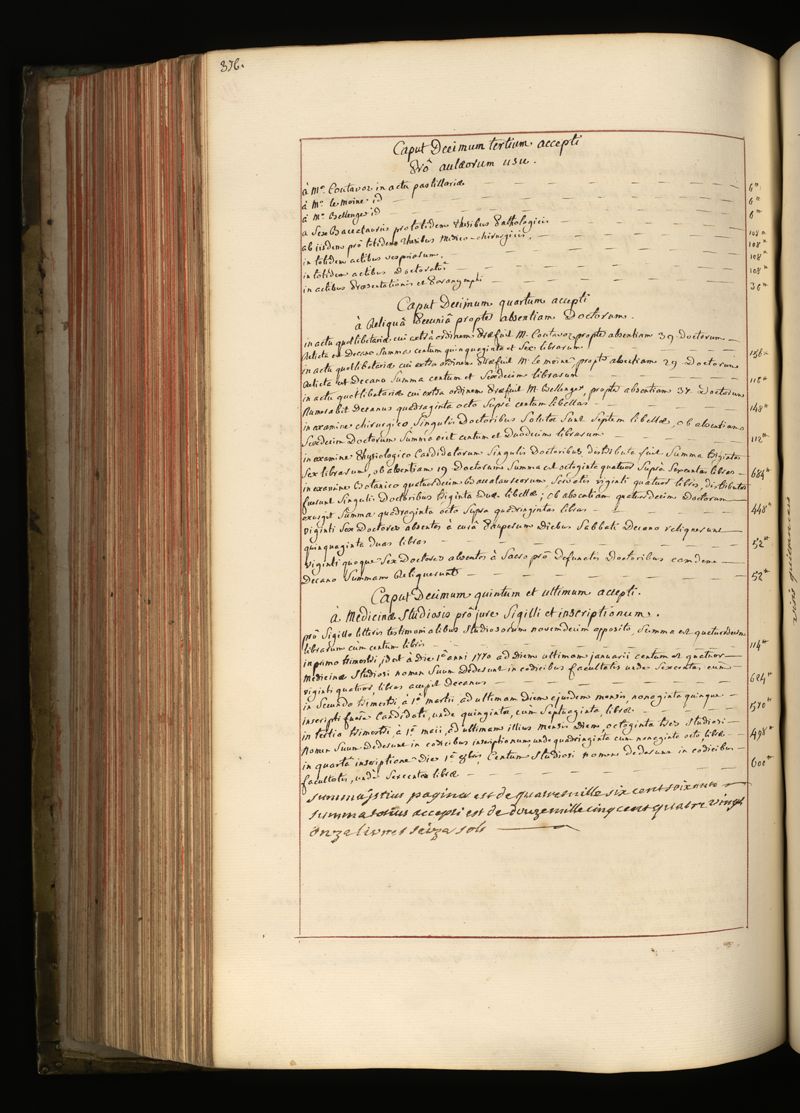 376.
Caput Decimum tertium accepti
Prô aulæorum usu.
à Mro. Coutavoz in actu pastillariæ — 6ᵗᵗ
à Mr. le moine id — 6ᵗᵗ
à Mr. Bellenger id — 6ᵗᵗ
à Sex Baccalaureis pro totidem thesibus Pathologicis — 108ᵗᵗ
ab iisdem prô totidem thesibus Medico-chirurgicis — 108ᵗᵗ
in totidem actibus vesperiarum — 108ᵗᵗ
in totidem actibus doctoratûs — 108ᵗᵗ
in actibus Præsentationis et Paranymphi — 36ᵗᵗ
Caput Decimum quartum accepti
à Reliquâ Pecuniâ propter absentiam Doctorum.
in actu quotlibetariæ cui extrà ordinem Præfuit M. Coutavoz propter absentiam 39 Doctorum —
Relicta est Decano Summa centum quinquaginta et Sex librarum — 156ᵗᵗ
in actu quotlibetariæ cui extra ordinem Præfuit Mr. le moine propter absentiam 29 Doctorum
Relicta est Decano Summa centum et Sexdecim librarum — 116ᵗᵗ
in actu quotlibetariæ cui extra ordinem Præfuit M. Bellenger, propter absentiam 37 Doctorum
Numerabit Decanus quadraginta octo Suprà centum libellas — 148ᵗᵗ
in examine chirurgico, Singulis Doctoribus Solitæ Sunt Septem libellæ, ob absentiam
Sexdecim Doctorum Summa erit centum et Duodecim librarum — 112ᵗᵗ
in examine Physiologico Candidatorum Singulis Doctoribus distributa fuit Summa triginta
Sex librarum, ob absentiam 19 Doctorum Summa est octoginta quatuor Supra Sexcentas libras — 684ᵗᵗ
in examine Botanico quatuordecim Baccalaureorum Solutis viginti quatuor libris, distributæ
fuerunt Singulis Doctoribus triginta Duæ libellæ; ob absentiam quatuordecim Doctorum —
exurgit Summa quadraginta octo Supra quadringentas libras — 448ᵗᵗ
viginti Sex Doctores absentes à curâ Pauperum Diebus Sabbati Decano reliquerunt
quinquaginta duas libras — 52ᵗᵗ
viginti quoque Sex Doctores absentes à Sacro prô Defunctis Doctoribus eamdem —
Decano Summam Reliquerunt — 52ᵗᵗ
Caput Decimum quintum et ultimum accepti.
à Medicinæ Studiosis prô jure Sigilli et inscriptionum.
prô Sigillo litteris testimonialibus Studiosorum novemdecim apposito, Summa est quatuordecim
librarum cum centum libris — 114ᵗᵗ
in primo trimestri, id est à die 1â anni 1770 ad diem ultimam januarii centum et quatuor
Medicinæ Studiosi nomen Suum Dederunt in codicibus facultatis unde Sexcentas, cum
viginti quatuor, libras accepit Decanus — 624ᵗᵗ
in Secundo trimestri à 1â martii ad ultimam Diem ejusdem mensis, nonaginta quinque —
inscripti fuere Candidati, unde quingintæ, cum Septuaginta, libræ — 570ᵗᵗ
in tertio trimestri, à 1â maii, ad ultimam illius Mensis Diem octoginta tres Studiosi —
Nomen Suum Dederunt in codicibus inscriptionum, unde quadringintæ cum nonaginta octo, libræ — 498ᵗᵗ
in quartâ inscriptione Die 1â 8bris, Centum Studiosi nomen dederunt in codicibus —
facultatis, unde Sexcentæ libræ — 600ᵗᵗ
Summa istius paginæ est de quatre mille six cent soixante
Summa totius accepti est de douze mille cinq cent quatre vingt
Onze livres seize sols